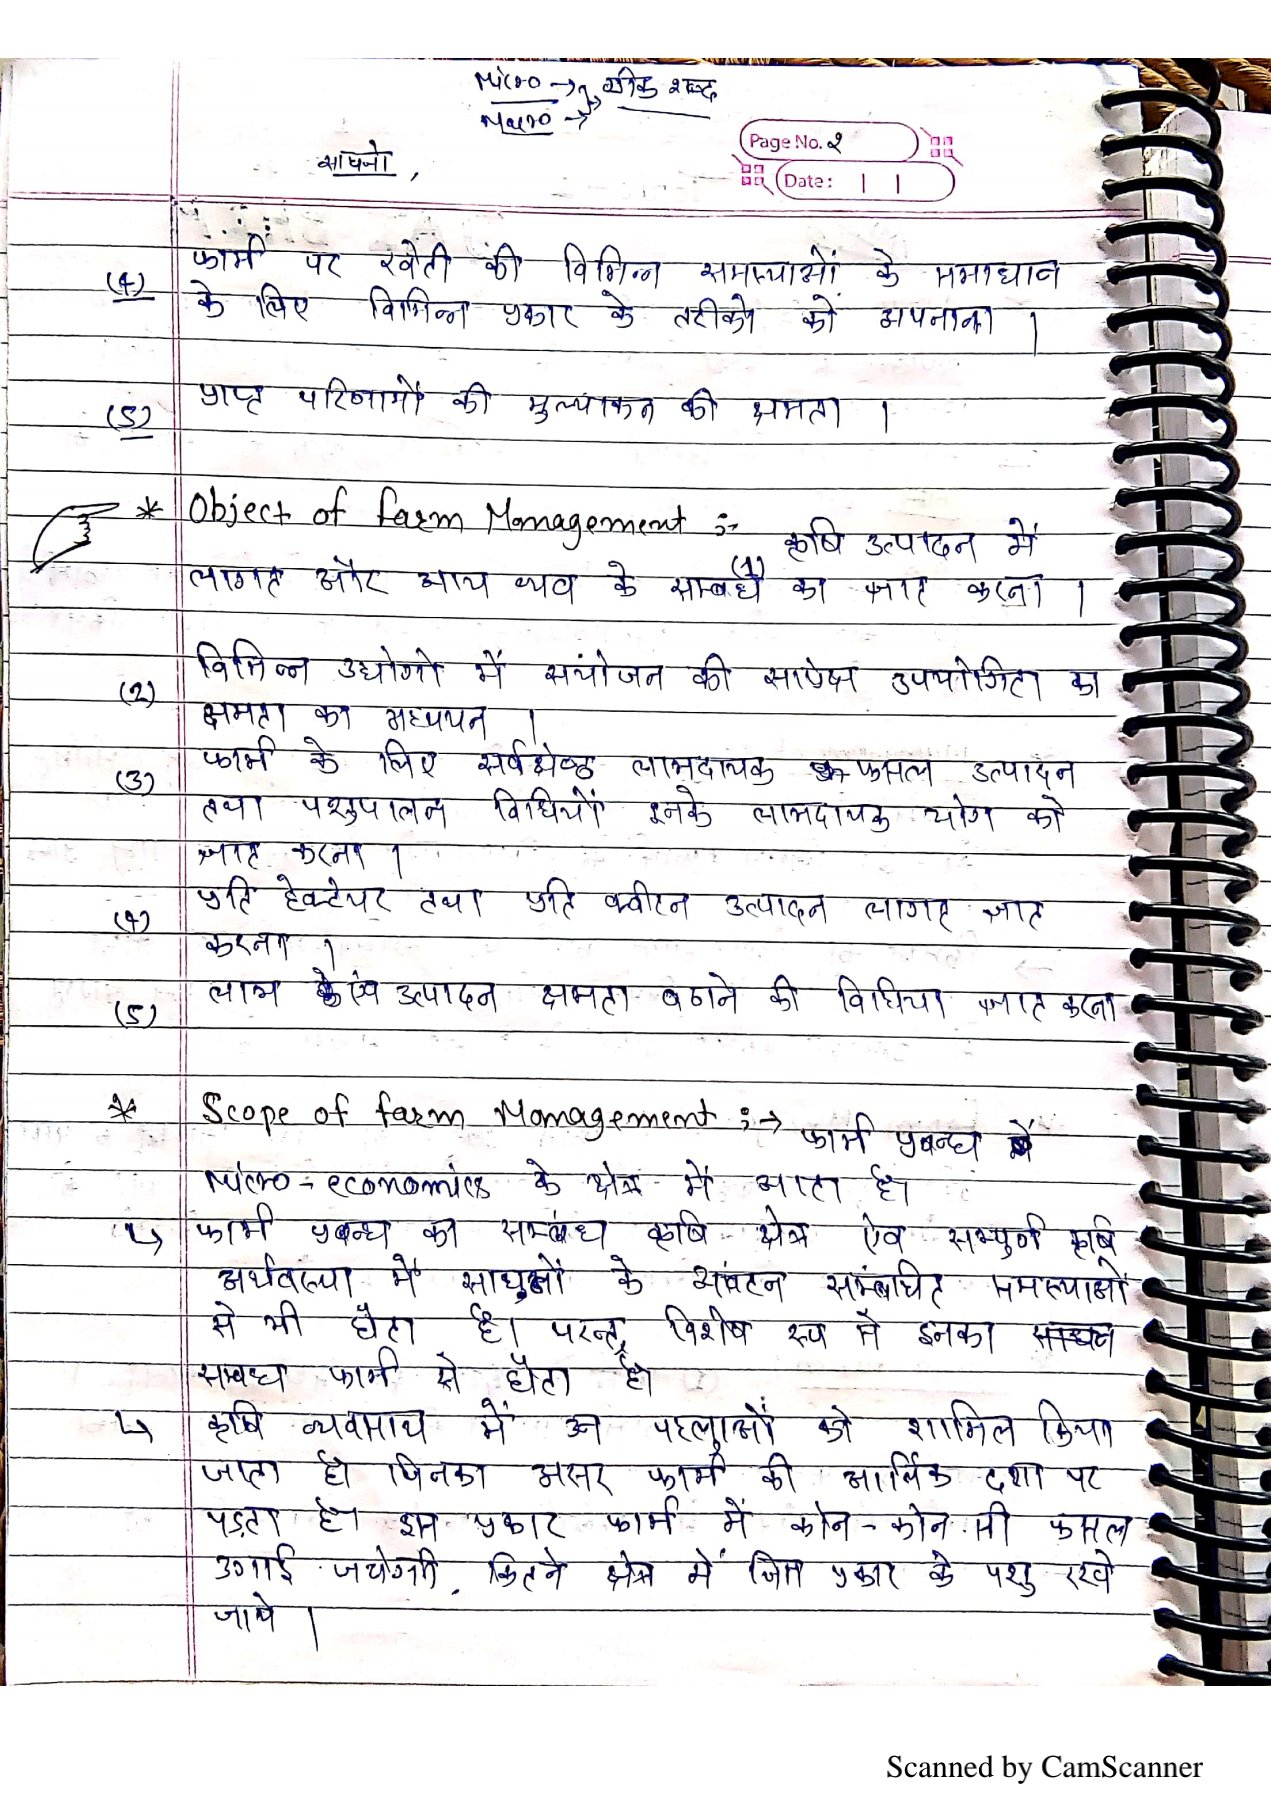 Micro → ग्रीक शब्द
Macro →
Page No. 2
साधनो ,
Date: | |
फार्म पर खेती की विभिन्न समस्याओं के समाधान
(4)
के लिए विभिन्न प्रकार के तरीको को अपनाना ।
प्राप्त परिणामों की मुल्याकन की क्षमता ।
(5)
* Object of farm Management :-
(1) कृषि उत्पादन में
लागत और आय व्यय के सम्बधं का ज्ञात करना ।
विभिन्न उद्योगो में संयोजन की सापेक्ष उपयोगिता का
(2)
क्षमता का अध्ययन ।
फार्म के लिए सर्वश्रेष्ठ लाभदायक फसल उत्पादन
(3)
तथा पशुपालन विधियों इनके लाभदायक योग को
ज्ञात करना ।
प्रति हेक्टेयर तथा प्रति क्वींटल उत्पादन लागत ज्ञात
(4)
करना ।
लाभ एंव उत्पादन क्षमता बढाने की विधिया ज्ञात करना
(5)
* Scope of farm Management :→ फार्म प्रबन्ध
Micro - economics के क्षेत्र में आता है।
↳ फार्म प्रबन्ध का सम्बंध कृषि क्षेत्र ऐव सम्पुर्ण कृषि
अर्थवस्था में के आंवटन सम्बंधित समस्याओं
से भी होता है। परन्तु विशेष रूप में इनका
सम्बध फार्म से होता है।
↳ कृषि व्यवसाय में उन पहलुओं को शामिल किया
जाता है। जिनका असर फार्म की आर्थिक दशा पर
पड़ता है। इस प्रकार फार्म में कोन - कोन सी फसल
उगाई जायेगी, कितने क्षेत्र में किस प्रकार के पशु रखे
जाये ।
Scanned by CamScanner